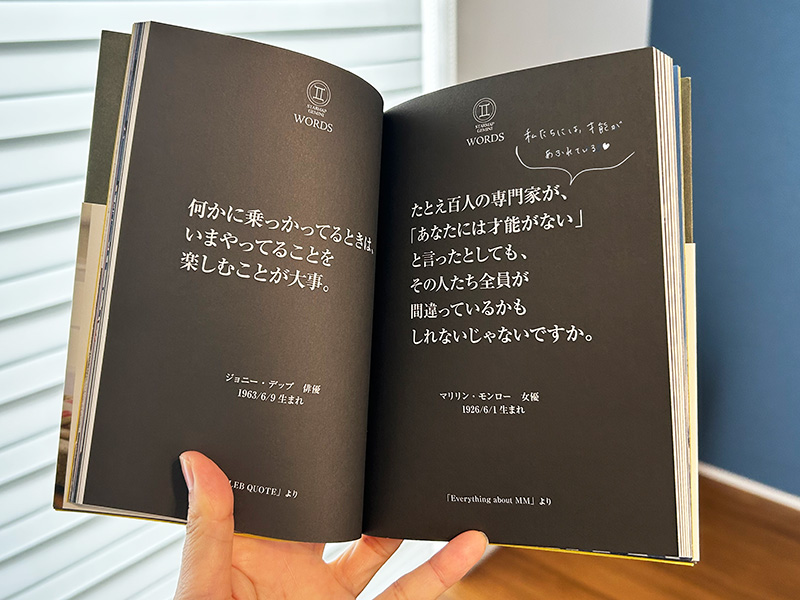 STARMAP
GEMINI
WORDS
何かに乗っかってるときは、
いまやってることを
楽しむことが大事。
ジョニー・デップ 俳優
1963/6/9 生まれ
LEB QUOTE」より
STARMAP
GEMINI
WORDS
私たちには、才能が
あふれている♥
たとえ百人の専門家が、
「あなたには才能がない」
と言ったとしても、
その人たち全員が
間違っているかも
しれないじゃないですか。
マリリン・モンロー 女優
1926/6/1 生まれ
「Everything about MM」より